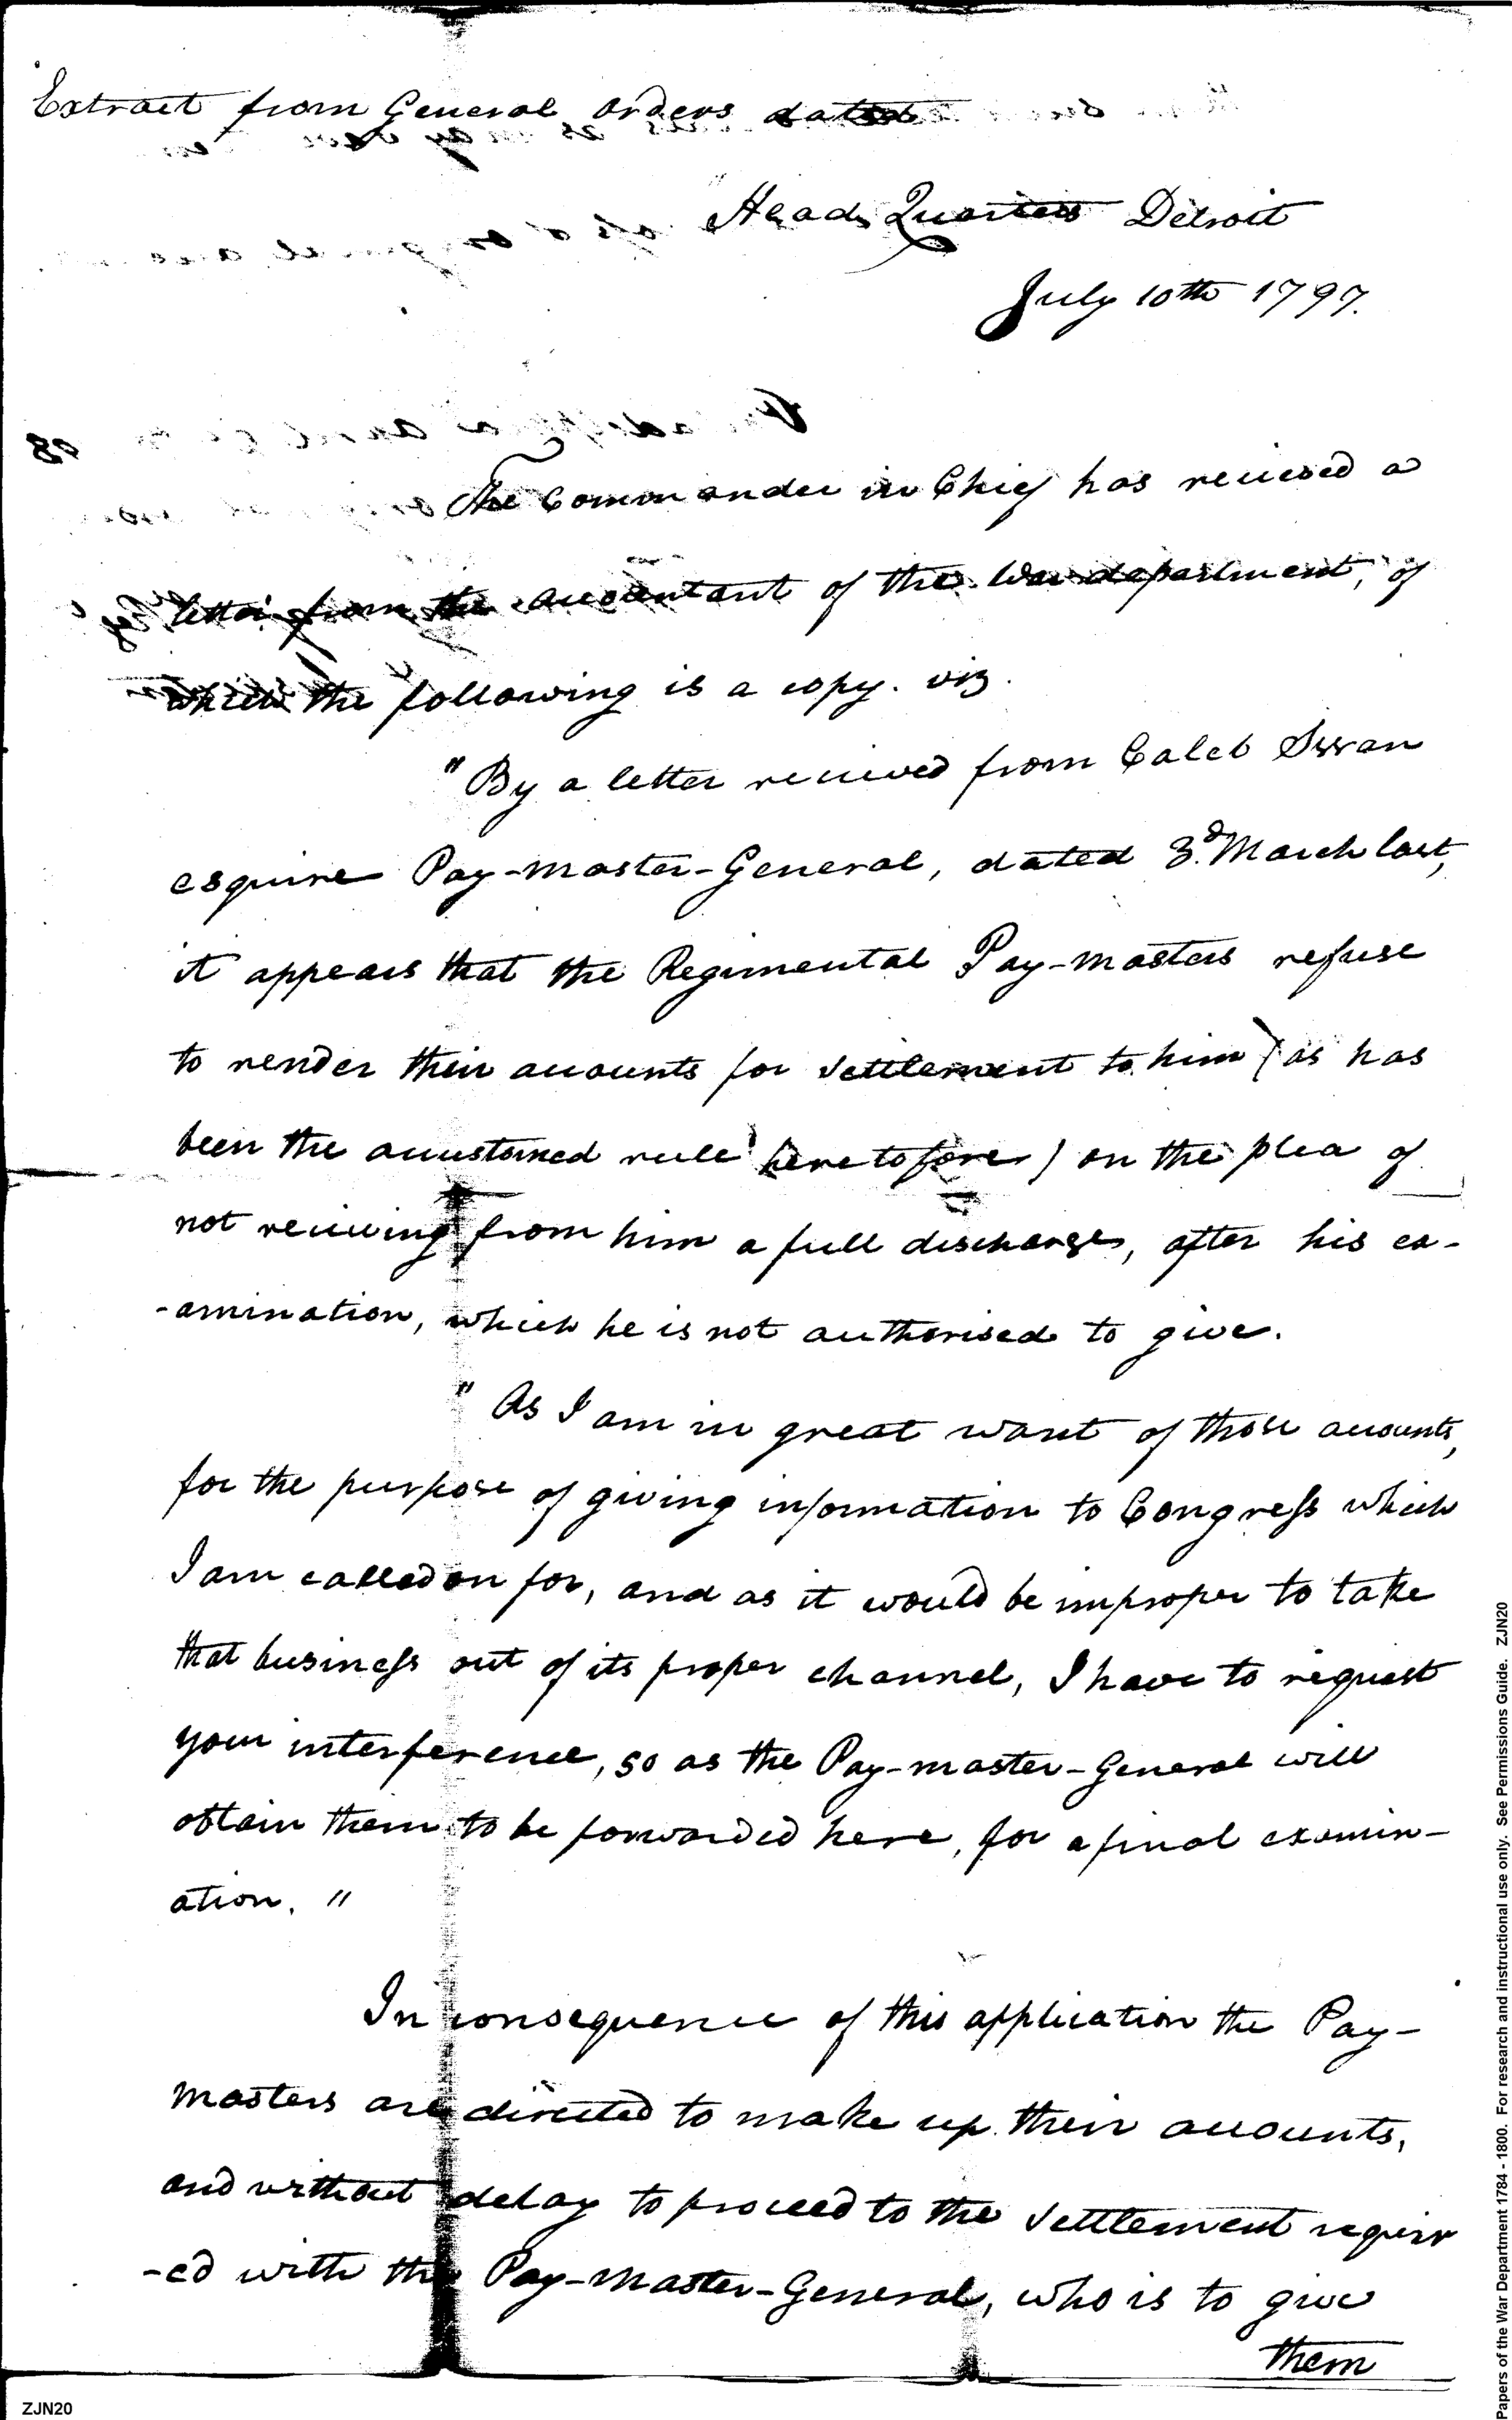 Extract from General Orders dated
Head Quarters Detroit
July 10th 1797.
The Commander in Chief has recieved a
letter from the accountant of the War department, of
which the following is a copy. viz.
"By a letter recieved from Caleb Swan
esquire Pay-master-General, dated 3.d March last,
it appears that the Regimental Pay-masters refuse
to render their accounts for settlement to him (as has
been the accustomed rule heretofore) on the plea of
not recieving from him a full discharge, after his ex-
-amination, which he is not authorised to give.
"As I am in great want of those accounts,
for the purpose of giving information to Congress which
I am called on for, and as it would be improper to take
that business out of its proper channel, I have to request
your interference, so as the Pay-master-General will
obtain them to be forwarded here, for a final examin-
ation. "
In consequence of this application the Pay-
masters are directed to make up their accounts,
and without delay to proceed to the settlement requir
-ed with the Pay-Master-General, who is to give
them
ZJN20
Papers of the War Department 1784 - 1800. For research and instructional use only. See Permissions Guide. ZJN20